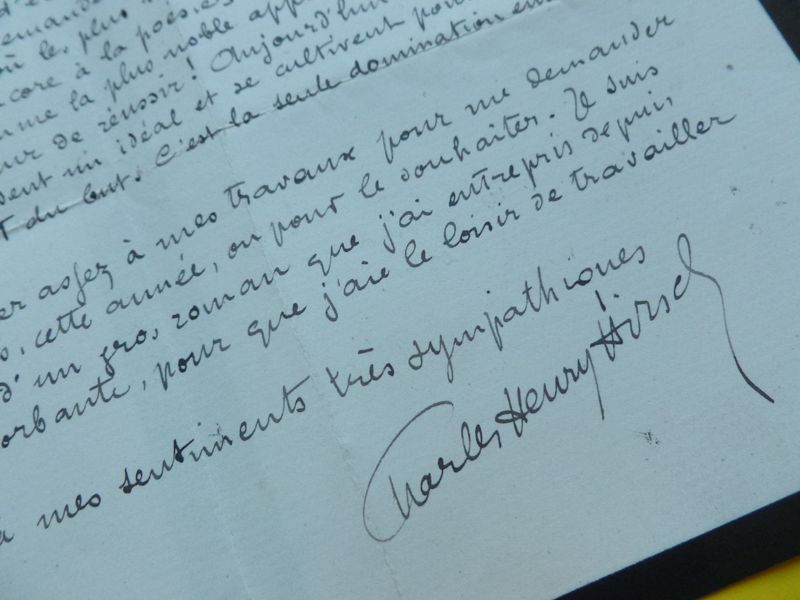 où les plus
encore à la poésie
comme la plus noble
de réussir! Aujourd'hui
un idéal et se cultivent pour
du but. C'est la seule domination
assez à mes travaux pour me demander
cette année, on peut le souhaiter. Je suis
d'un gros roman que j'ai entrepris depuis
pour que j'aie le loisir de travailler
mes sentiments très sympathiques
Charles Henry Hirsch